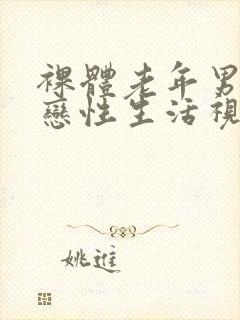 裸體老年男
戀性生活視
姚進